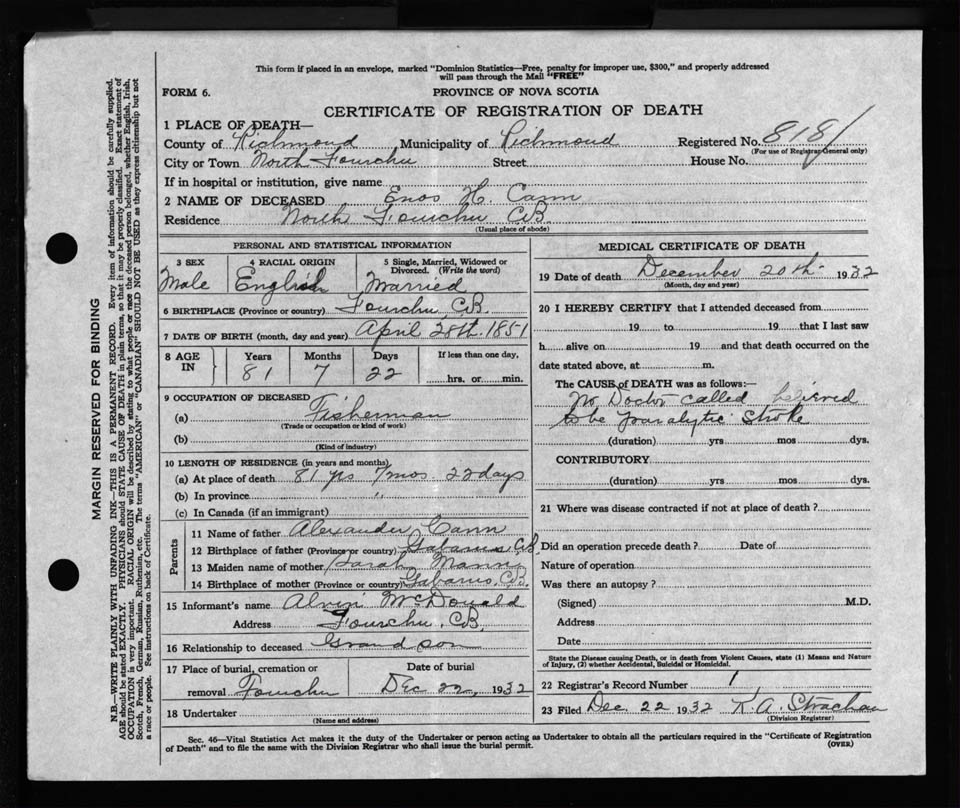 This form if placed in an envelope, marked "Dominion Statistics—Free, penalty for improper use, $300," and properly addressed
will pass through the Mail "FREE"
FORM 6.
PROVINCE OF NOVA SCOTIA
CERTIFICATE OF REGISTRATION OF DEATH
1 PLACE OF DEATH—
County of Richmond Municipality of Richmond Registered No. 818
(For use of Registrar General only)
City or Town North Fourchu Street House No.
If in hospital or institution, give name
2 NAME OF DECEASED Enos H. Cann
Residence North Fourchu CB
(Usual place of abode)
PERSONAL AND STATISTICAL INFORMATION
3 SEX 4 RACIAL ORIGIN 5 Single, Married, Widowed or
Divorced. (Write the word)
Male English Married
6 BIRTHPLACE (Province or country) Fourchu, CB
7 DATE OF BIRTH (month, day and year) April 28th. 1851
8 AGE IN Years Months Days If less than one day,
81 7 22 hrs. or min.
9 OCCUPATION OF DECEASED
(a) Fisherman
(Trade or occupation or kind of work)
(b)
(Kind of industry)
10 LENGTH OF RESIDENCE (in years and months)
(a) At place of death 81 yrs 7 mos 22 days
(b) In province "
(c) In Canada (if an immigrant)
Parents
11 Name of father Alexander Cann
12 Birthplace of father (Province or country) Gabarus CB.
13 Maiden name of mother Sarah Mann
14 Birthplace of mother (Province or country) Gabarus, C.B.
15 Informant's name Alvin McDonald
Address Fourchu, CB,
16 Relationship to deceased Grand son
17 Place of burial, cremation or Date of burial
removal Fourchu Dec 22, 1932
18 Undertaker
(Name and address)
MEDICAL CERTIFICATE OF DEATH
19 Date of death December 20th 1932
(Month, day and year)
20 I HEREBY CERTIFY that I attended deceased from
19 to 19 that I last saw
h alive on 19 and that death occurred on the
date stated above, at m.
The CAUSE of DEATH was as follows:—
No Doctor called believed
to be paralytic stroke
(duration) yrs mos dys.
CONTRIBUTORY
(duration) yrs mos dys.
21 Where was disease contracted if not at place of death?
Did an operation precede death? Date of
Nature of operation
Was there an autopsy?
(Signed) M.D.
Address
Date
State the Disease causing Death, or in death from Violent Causes, state (1) Means and Nature
of Injury, (2) whether Accidental, Suicidal or Homicidal.
22 Registrar's Record Number 1
23 Filed Dec 22 1932 K. A. Strachan
(Division Registrar)
Sec. 46—Vital Statistics Act makes it the duty of the Undertaker or person acting as Undertaker to obtain all the particulars required in the "Certificate of Registration
of Death" and to file the same with the Division Registrar who shall issue the burial permit. (OVER)
MARGIN RESERVED FOR BINDING
N.B.—WRITE PLAINLY WITH UNFADING INK—THIS IS A PERMANENT RECORD. Every item of information should be carefully supplied.
AGE should be stated EXACTLY. PHYSICIANS should STATE CAUSE OF DEATH in plain terms, so that it may be properly classified. Exact statement of
OCCUPATION is very important. RACIAL ORIGIN will be described by stating to what people or race the deceased person belonged, whether English, Irish,
Scotch, French, German, Russian, Ruthenian, etc. The terms "AMERICAN" or "CANADIAN" SHOULD NOT BE USED as they express citizenship but not
a race or people. See instructions on back of Certificate.